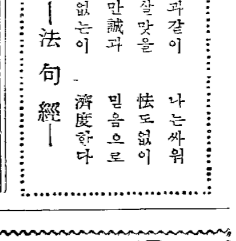 과같이 나는싸워
살맛을 怯도없이
만誠과 믿음으로
없는이 濟度한다
—法句經—